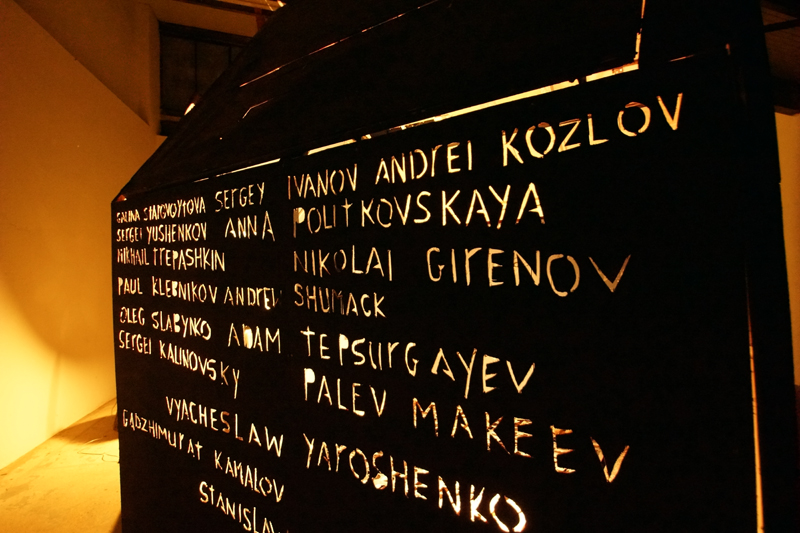 GALINA STAROVOYTOVA SERGEY IVANOV ANDREI KOZLOV
SERGEI YUSHENKOV ANNA POLITKOVSKAYA
MIKHAIL TREPASHKIN NIKOLAI GIRENOV
PAUL KLEBNIKOV ANDREW SHUMACK
OLEG SLABYNKO ADAM TEPSURGAYEV
SERGEI KALINOVSKY PALEV MAKEEV
VYACHESLAW YAROSHENKO
GADZHIMURAT KAMALOV
STANISLAV